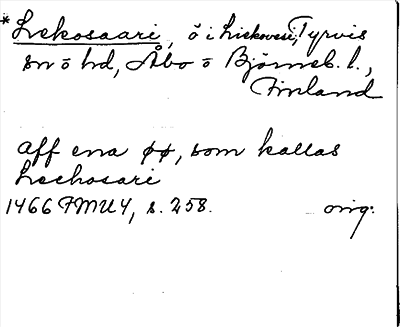 *Lekosaari, ö i Liekovesi, Tyrvis
sn o hd, Åbo o Björneb. l.,
Finland
aff ena øø, som kallas
Leehosari
1466 FMU 4, s. 258. orig.